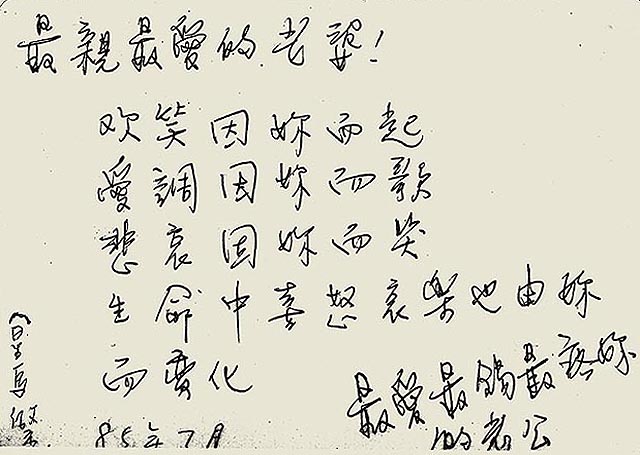 最親最愛的老婆！
欢笑因妳而起
愛調因妳而歌
悲哀因妳而哭
生命中喜怒哀樂也由妳
而變化
最愛最賜最疼妳
的老公
85年7月